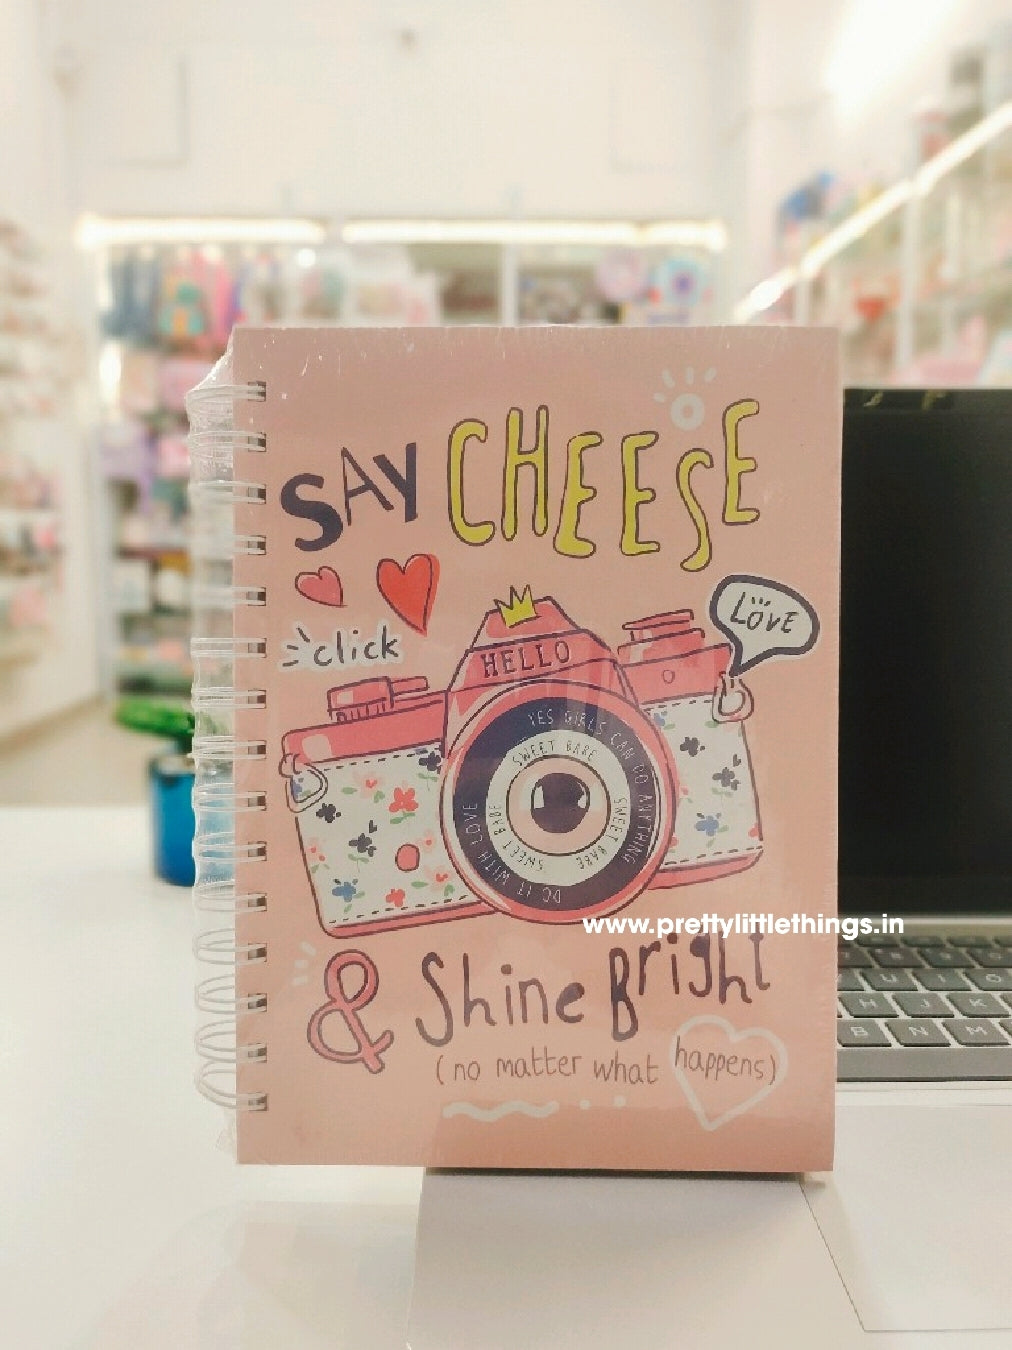 SAY CHEESE
click
LOVE
HELLO
YES GIRLS CAN DO ANYTHING
DO IT WITH LOVE
SWEET BABE
SWEET BABE
SWEET BABE
SWEET BABE
www.prettylittlethings.in
& Shine Bright
(no matter what happens)
U I O
H J K
B N M